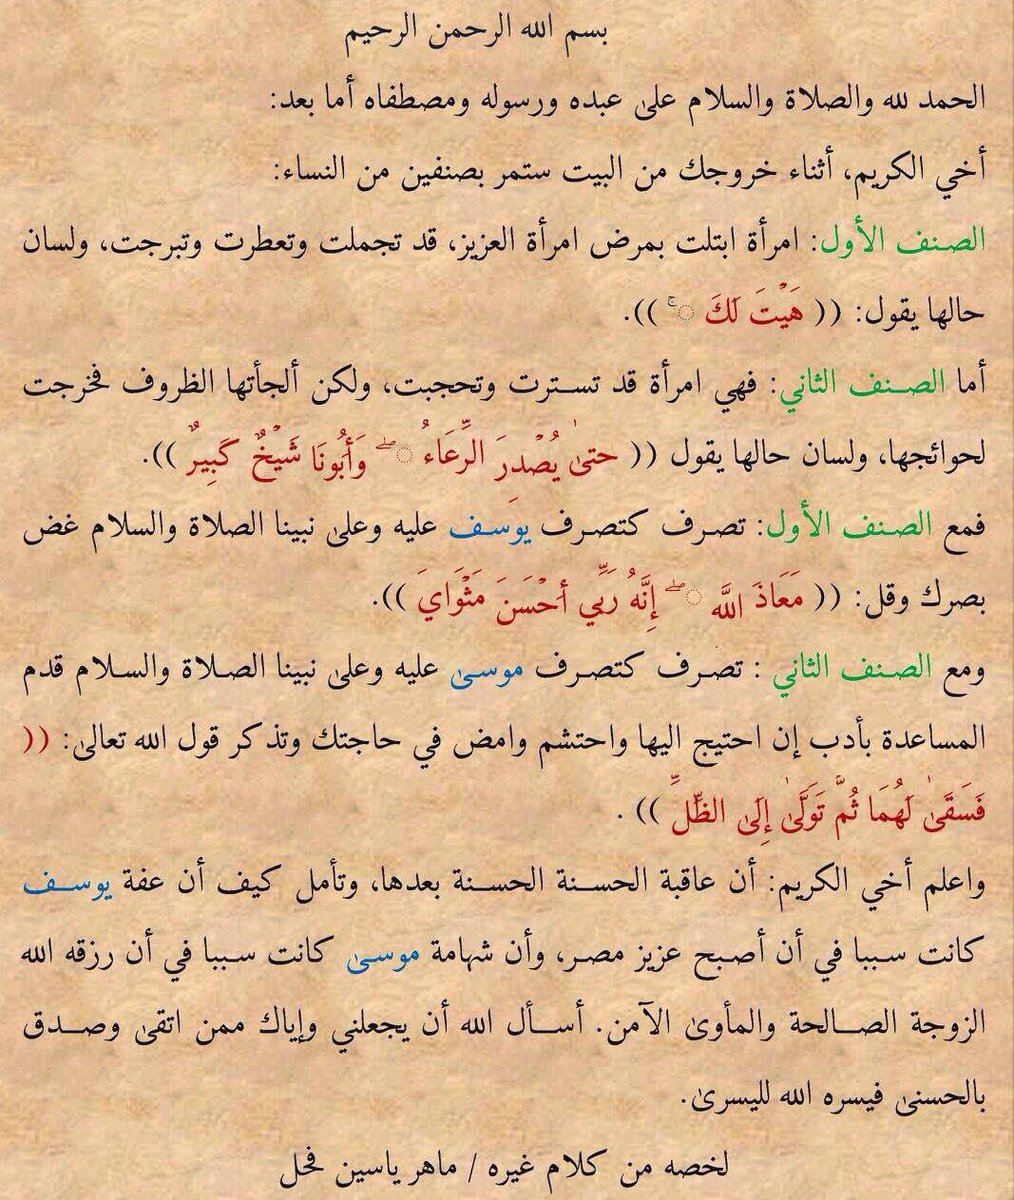 بسم الله الرحمن الرحيم
الحمد لله والصلاة والسلام على عبده ورسوله ومصطفاه أما بعد:
أخي الكريم، أثناء خروجك من البيت ستمر بصنفين من النساء:
الصنف الأول: امرأة ابتلت بمرض امرأة العزيز، قد تجملت وتعطرت وتبرجت، ولسان
حالها يقول: (( هَيْتَ لَكَ ۚ )).
أما الصنف الثاني: فهي امرأة قد تسترت وتحجبت، ولكن ألجأتها الظروف فخرجت
لحوائجها، ولسان حالها يقول (( حتىٰ يُصْدِرَ الرِّعَاءُ ۖ وَأَبُونَا شَيْخٌ كَبِيرٌ )).
فمع الصنف الأول: تصرف كتصرف يوسف عليه وعلى نبينا الصلاة والسلام غض
بصرك وقل: (( مَعَاذَ اللَّه ۖ إِنَّهُ رَبِّي أحْسَنَ مَثْوَايَ )).
ومع الصنف الثاني : تصرف كتصرف موسىٰ عليه وعلى نبينا الصلاة والسلام قدم
المساعدة بأدب إن احتيج اليها واحتشم وامض في حاجتك وتذكر قول الله تعالىٰ: ((
فَسَقَىٰ لَهُمَا ثُمَّ تَوَلَّىٰ إِلَى الظِّلِّ )) .
واعلم أخي الكريم: أن عاقبة الحسنة الحسنة بعدها، وتأمل كيف أن عفة يوسف
كانت سببا في أن أصبح عزيز مصر، وأن شهامة موسىٰ كانت سببا في أن رزقه الله
الزوجة الصالحة والمأوىٰ الآمن. أسأل الله أن يجعلني وإياك ممن اتقىٰ وصدق
بالحسنىٰ فيسره الله لليسرىٰ.
لخصه من كلام غيره / ماهر ياسين فحل